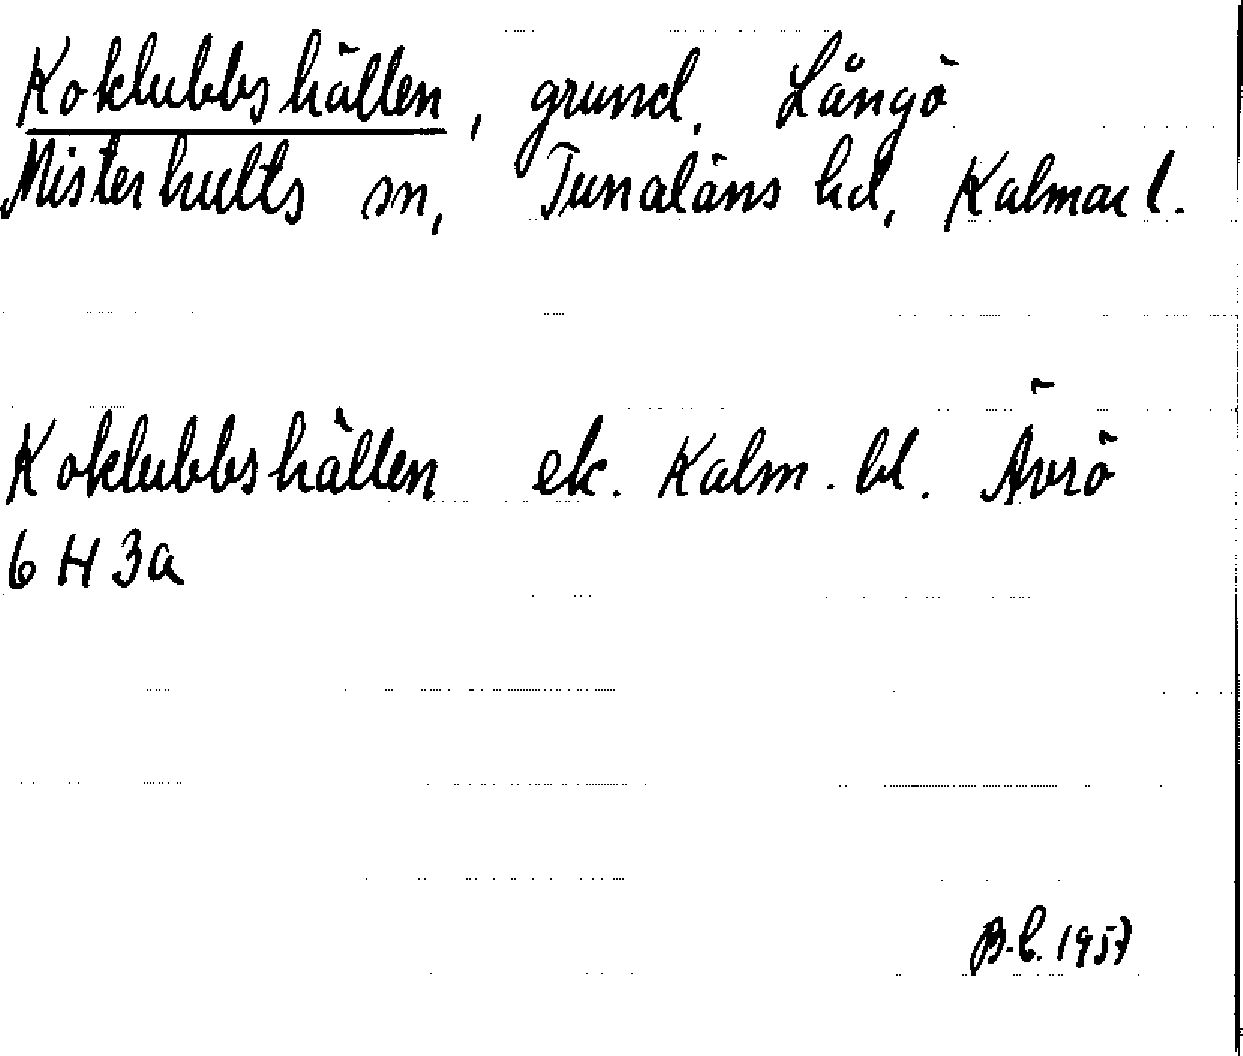 Koklubbshällen, grund, Långö
Misterhults sn, Tunaläns hd, Kalmar l.
Koklubbshällen ek. Kalm. bl. Ävrö
6 H 3a
B.L. 1957